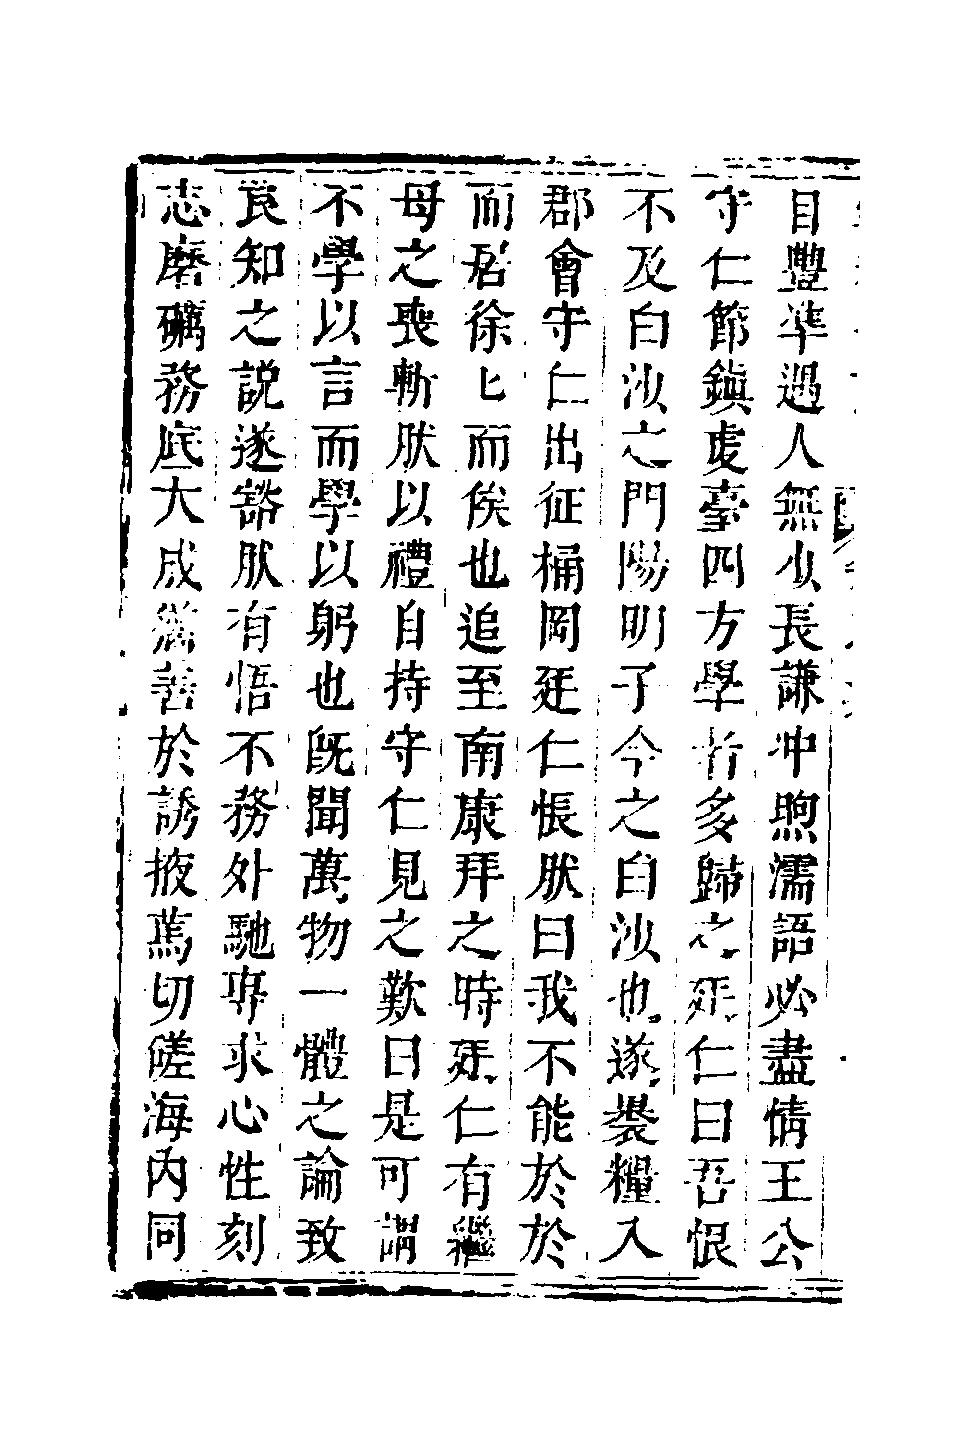 目豐準遇人無少長謙冲煦濡語必盡情王公
守仁節鎮虔臺四方學者多歸之廷仁曰吾恨
不及白沙之門陽明子今之白沙也遂裹糧入
郡會守仁出征桶岡廷仁悵肰曰我不能於於
而居徐匕而俟也追至南康拜之時廷仁有繼
母之喪斬肰以禮自持守仁見之歎曰是可謂
不學以言而學以躬也旣聞萬物一體之論致
良知之説遂豁肰有悟不務外馳專求心性刻
志磨礪務底大成善於誘掖焉切磋海內同